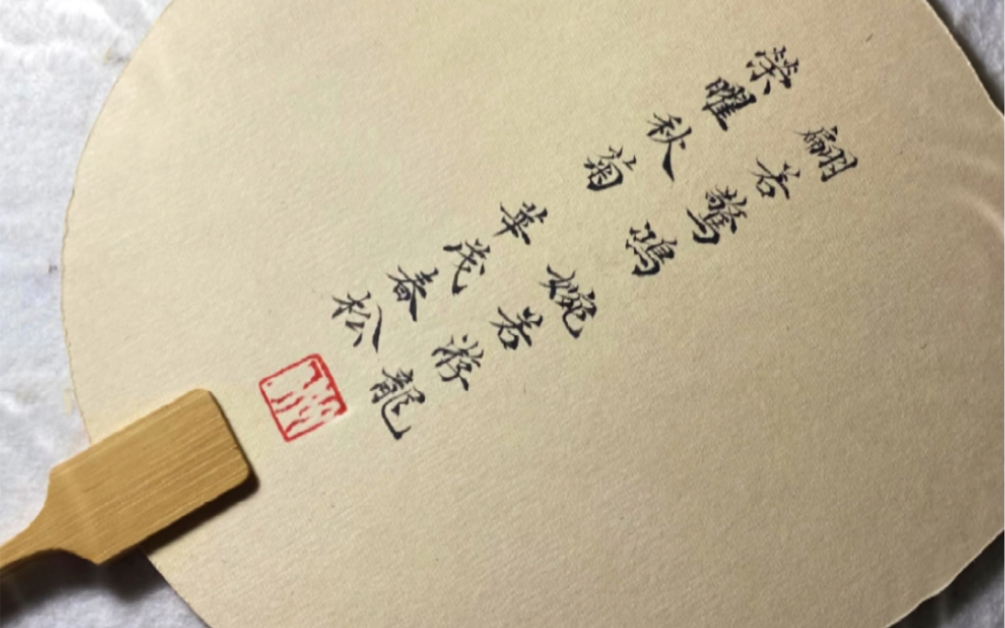 翩若驚鴻 婉若游龍
榮曜秋菊 華茂春松